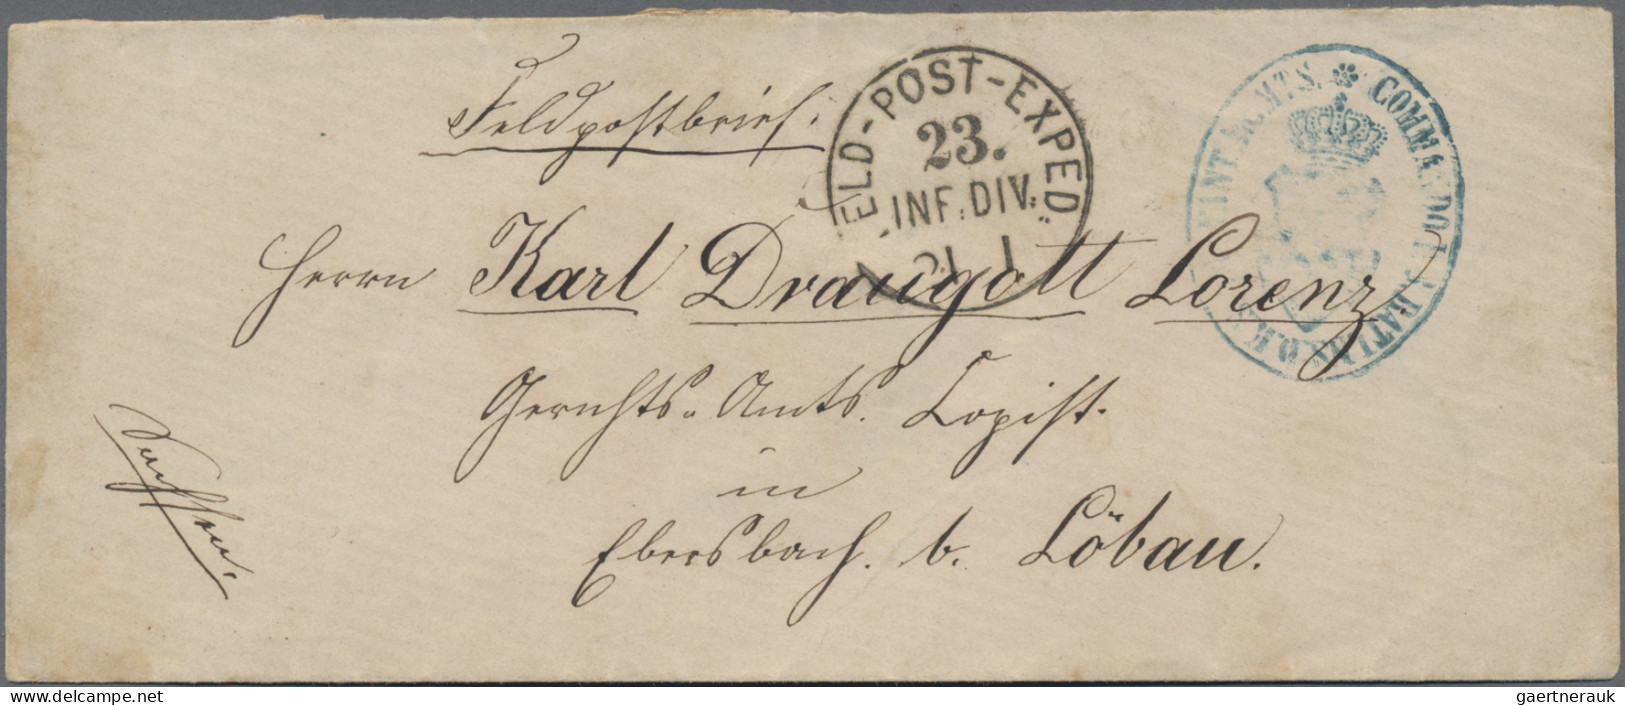 Feldpostbrief.
FELD-POST-EXPED.
23.
INF. DIV.
COMMANDO
Herrn Karl Draugott Lorenz
Gerichts-Amts. Copist.
in
Ebersbach. b. Löbau.
Sachsen.
www.delcampe.net
gaertnerauk